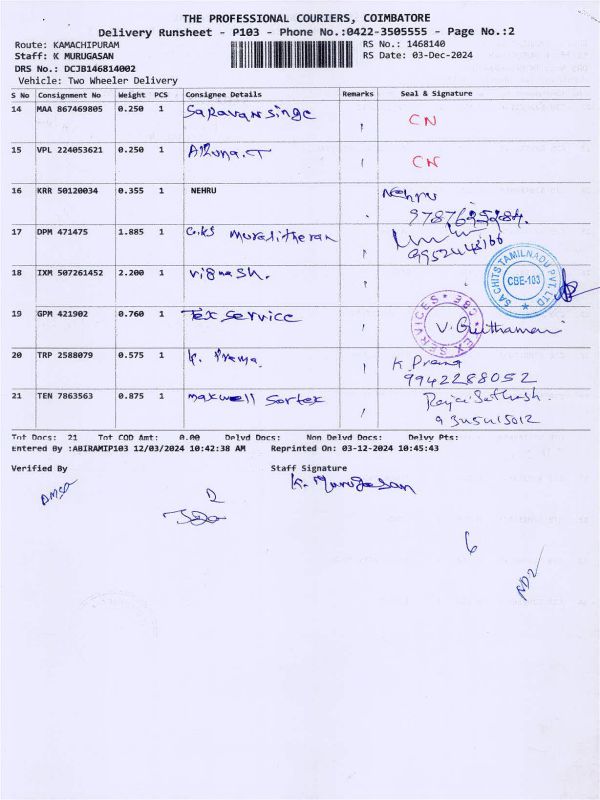 THE PROFESSIONAL COURIERS, COIMBATORE
Delivery Runsheet - P103 - Phone No.:0422-3505555 - Page No.:2
Route: KAMACHIPURAM RS No.: 1468140
Staff: K MURUGASAN RS Date: 03-Dec-2024
DRS No.: DCJB146814002
Vehicle: Two Wheeler Delivery
S No Consignment No Weight PCS Consignee Details Remarks Seal & Signature
14 MAA 867469805 0.250 1 Saravan singe CN
15 VPL 224053621 0.250 1 Aruna.T CN
16 KRR 50120034 0.355 1 NEHRU Nehru
17 DPM 471475 1.885 1 G.K.S Muralitheran
18 IXM 507261452 2.200 1 vignesh. SACHITS TAMILNADU PVT. LTD CBE-103
19 GPM 421902 0.760 1 Tex service EX SERVICES CBE V. Griithamani
20 TRP 2588079 0.575 1 K. Prema. K. Prema
9942288052
21 TEN 7863563 0.875 1 maxwell Sortex
Tot Docs: 21 Tot COD Amt: 0.00 Delvd Docs: Non Delvd Docs: Delvy Pts:
Entered By :ABIRAMIP103 12/03/2024 10:42:38 AM Reprinted On: 03-12-2024 10:45:43
Verified By Staff Signature
K. Murugasan
6